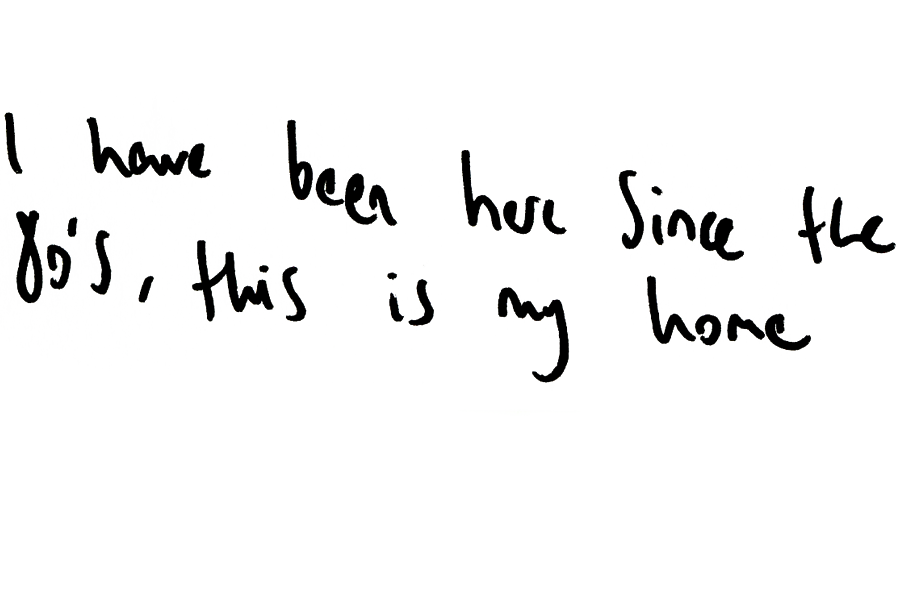 I have been here since the
80's, this is my home